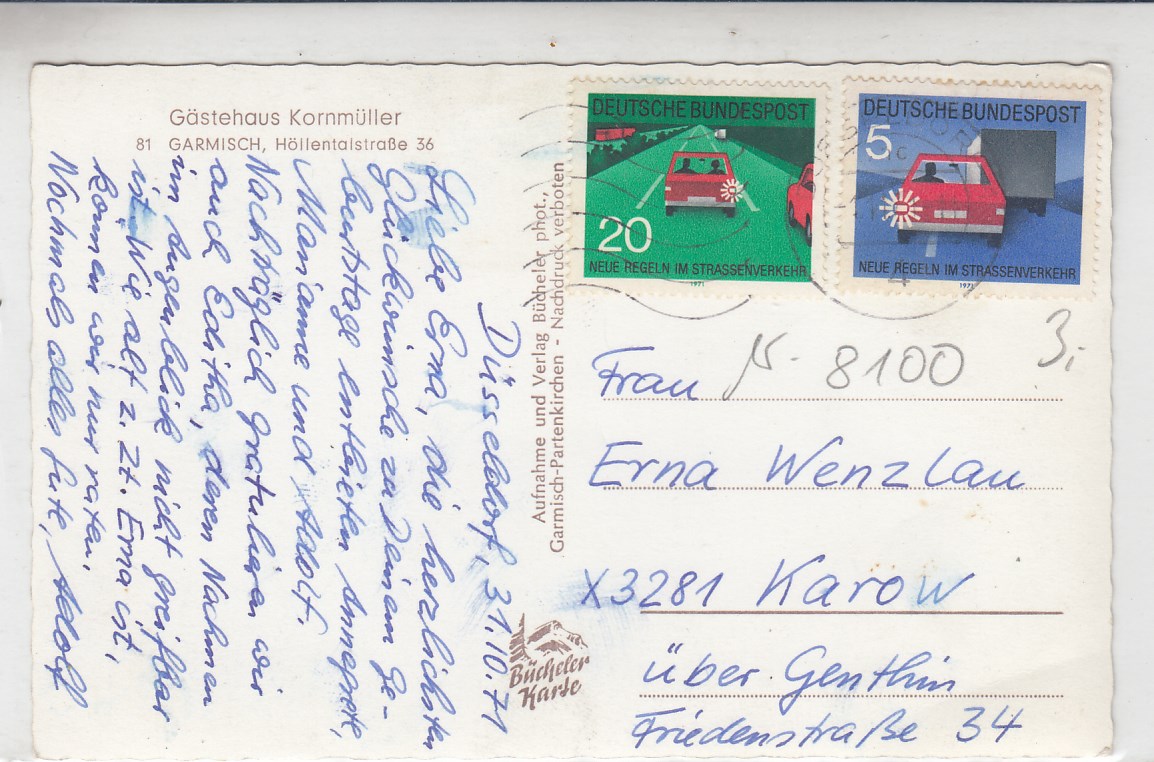 Gästehaus Kornmüller
81 GARMISCH, Höllentalstraße 36
Düsseldorf, 31.10.71
Liebe Erna, die herzlichsten
Glückwünsche zu Deinem Ge-
burtstage entbieten Annegrete,
Marianne und Adolf.
Nachträglich gratulieren wir
auch Editha, deren Nachnamen
im Augenblick nicht greifbar
ist. Wie alt z. Zt. Erna ist,
können wir nur raten.
Nochmals alles Gute, Adolf
Aufnahme und Verlag Bücheler phot.,
Garmisch-Partenkirchen - Nachdruck verboten
Bücheler
Karte
DEUTSCHE BUNDESPOST
20
NEUE REGELN IM STRASSENVERKEHR
1971
DEUTSCHE BUNDESPOST
5
NEUE REGELN IM STRASSENVERKEHR
1971
8100
3,-
Frau
Erna Wenzlau
X3281 Karow
über Genthin
Friedenstraße 34